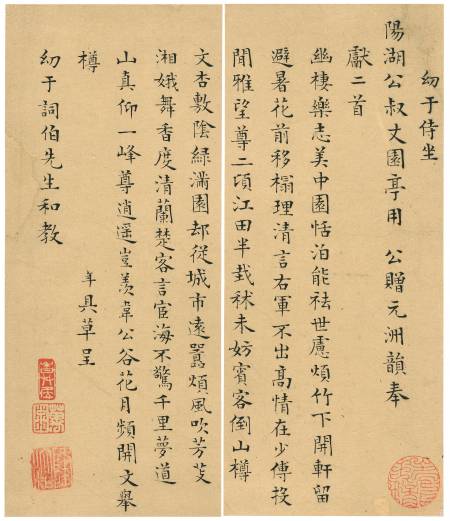 幼于侍坐
陽湖公叔丈園亭用 公贈元洲韻奉
獻二首
幽棲樂志美中園恬泊能祛世慮煩竹下開軒留
避暑花前移榻理清言右軍不出高情在少傅投
閒雅望尊二頃江田半栽秫未妨賓客倒山樽
文杏敷陰綠滿園却從城市遠囂煩風吹芳芰
湘娥舞香度清蘭楚客言宦海不驚千里夢道
山真仰一峰尊逍遥豈羨韋公谷花月頻開文舉
樽 年具草呈
幼于詞伯先生和教